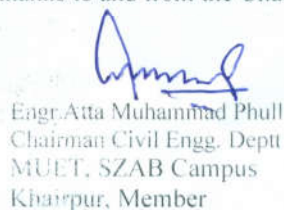 to and from the
Engr.Atta Muhammad Phull
Chairman Civil Engg. Deptt
MUET, SZAB Campus
Khairpur, Member